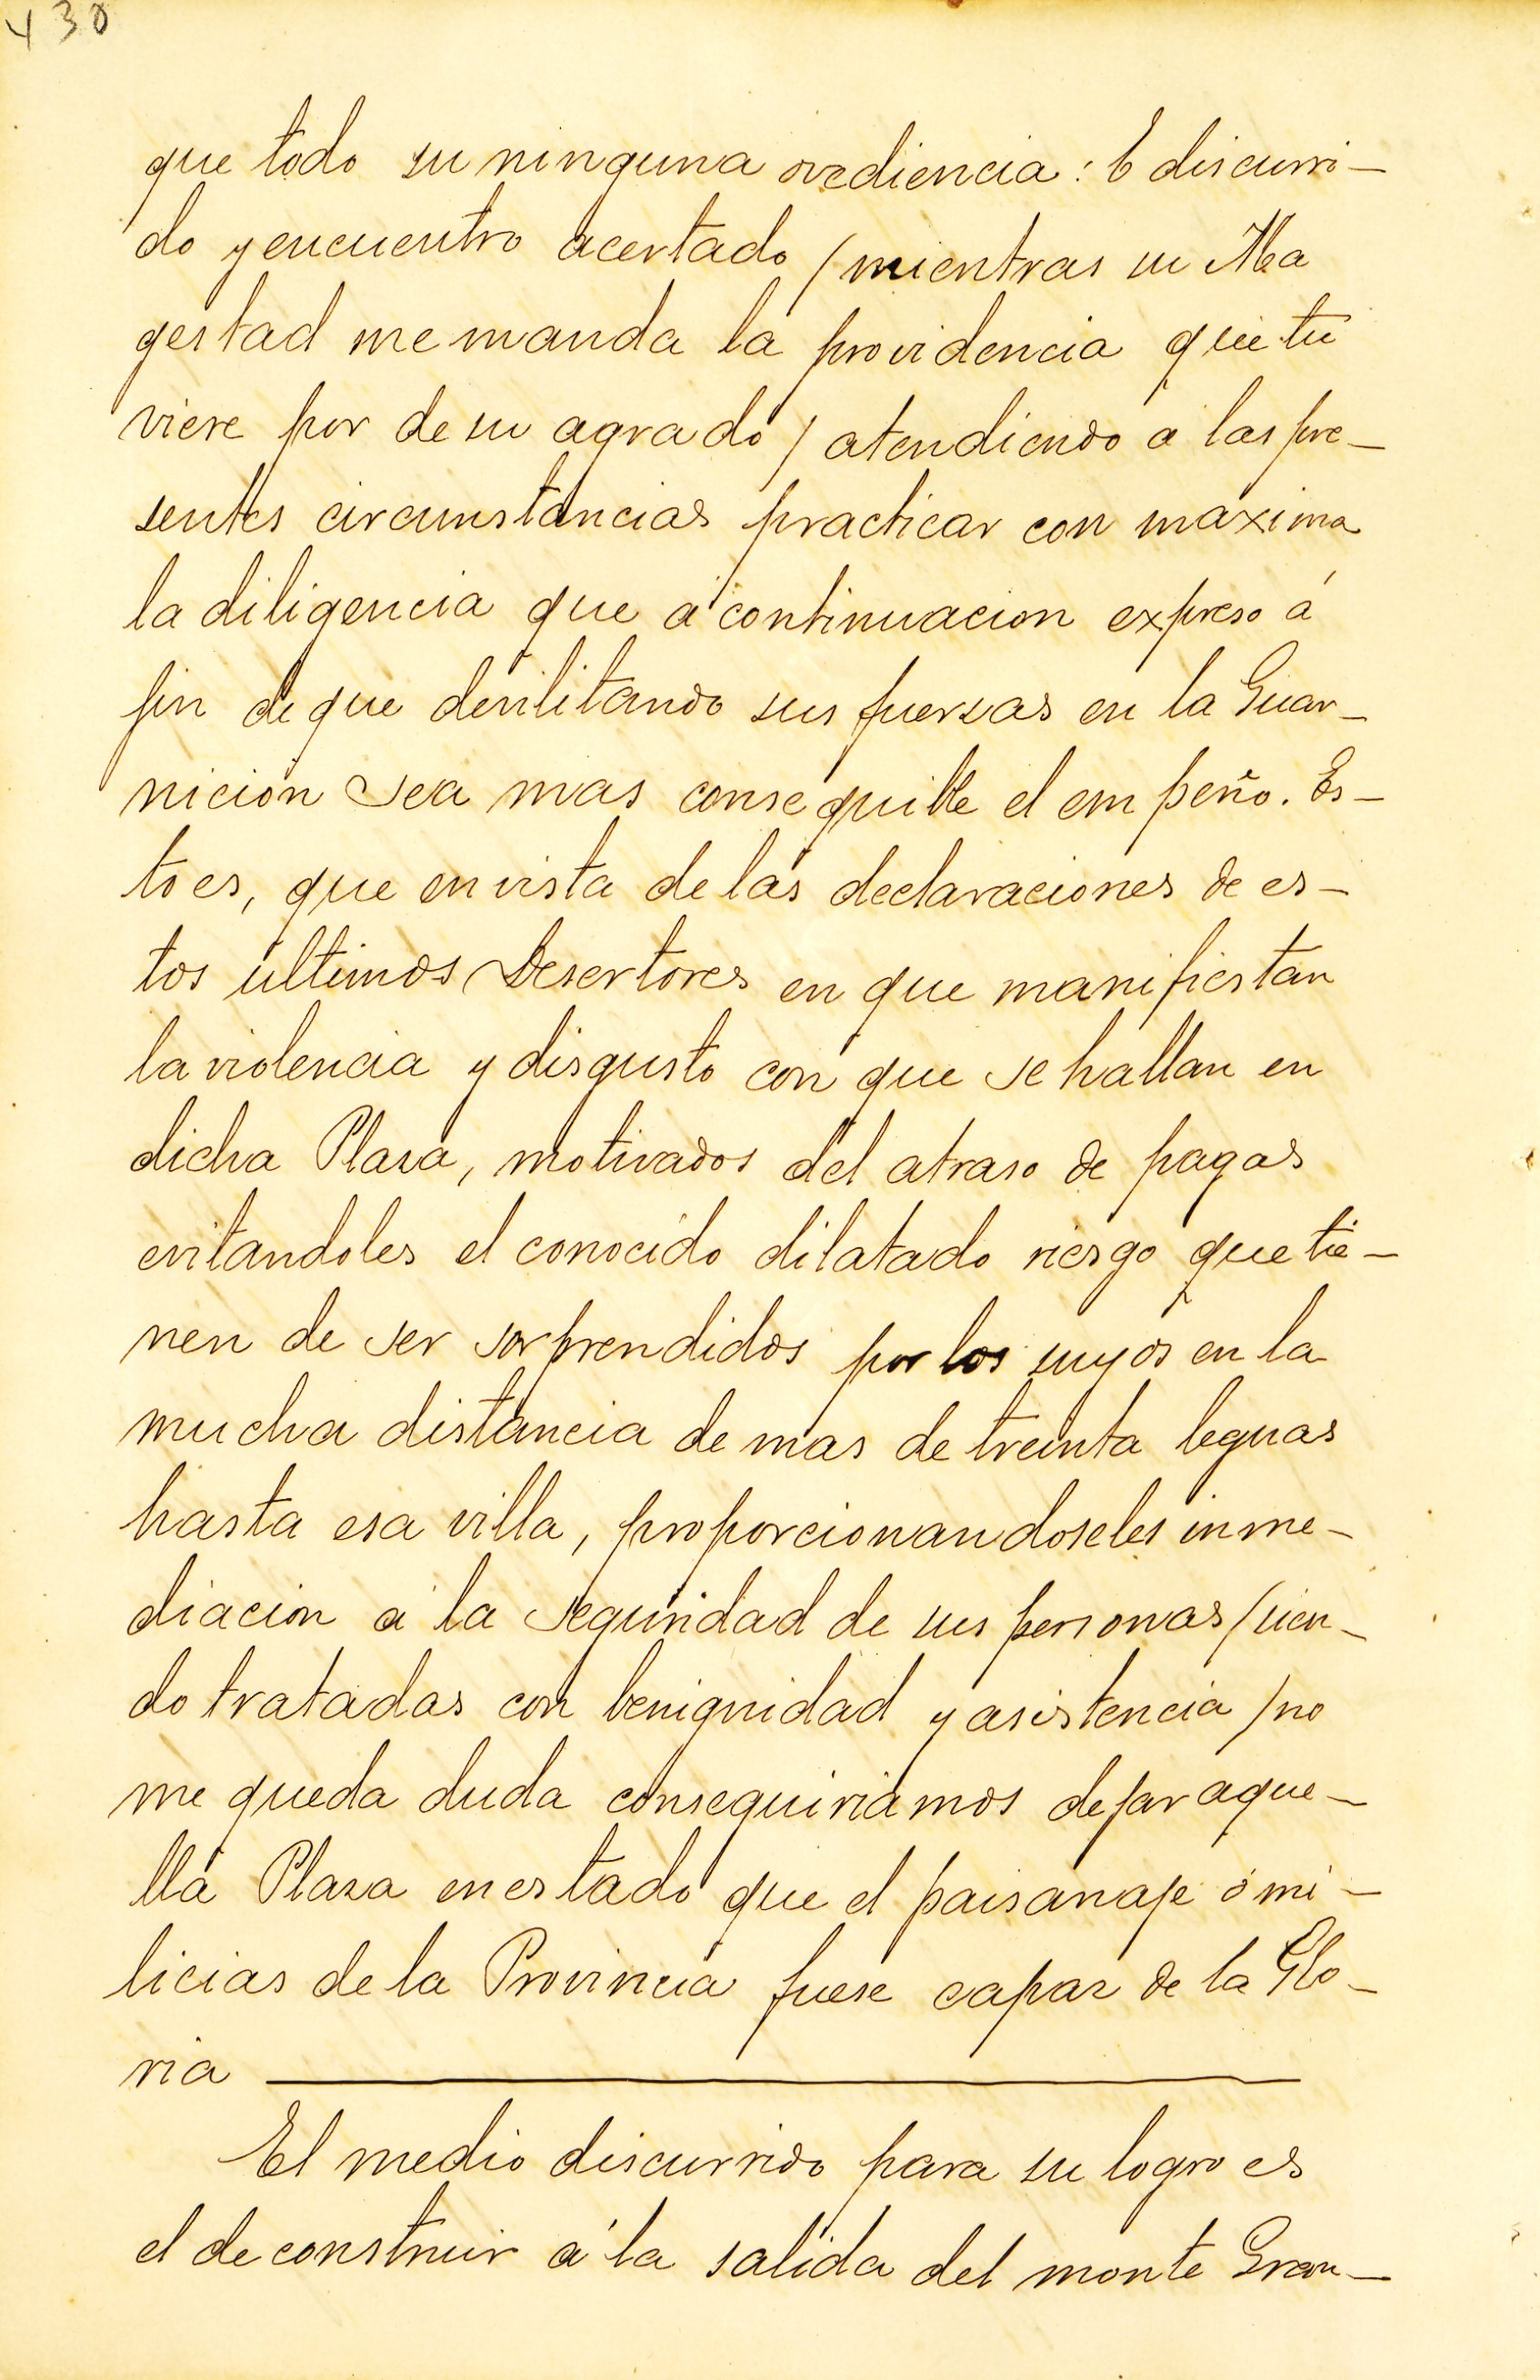 430
que todo su ninguna ovediencia: E discurri-
do y encuentro acertado / mientras su Ma
gestad me manda la providencia que tu
viere por de su agrado / atendiendo a las pre-
sentes circunstancias practicar con maxima
la diligencia que a continuacion expreso á
fin de que devilitando sus fuersas en la Guar-
nicion sea mas conseguible el empeño. Es-
to es, que en vista de las declaraciones de es-
tos ultimos Desertores en que manifiestan
la violencia y disgusto con que se hallan en
dicha Plasa, motivados del atraso de pagas
evitandoles el conocido dilatado riesgo que tie-
nen de ser sorprendidos por los suyos en la
mucha distancia de mas de treinta leguas
hasta esa villa, proporcionandoseles inme-
diacion a la seguridad de sus personas / sien-
do tratadas con benignidad y asistencia / no
me queda duda conseguiriamos dejar aque-
lla Plasa en estado que el paisanaje ó mi-
licias de la Provincia fuese capaz de la Glo-
ria
El medio discurrido para su logro es
el de construir á la salida del monte Gran-